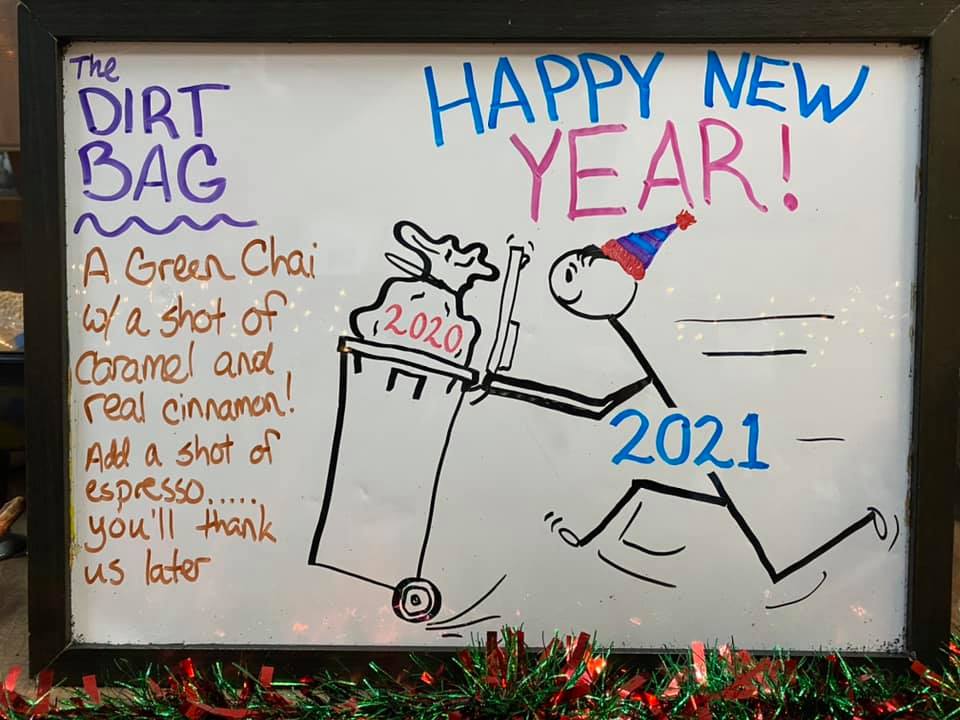 The
DIRT
BAG
A Green Chai
w/ a shot of
caramel and
real cinnamon!
Add a shot of
espresso.....
you'll thank
us later
HAPPY NEW
YEAR!
2020
2021